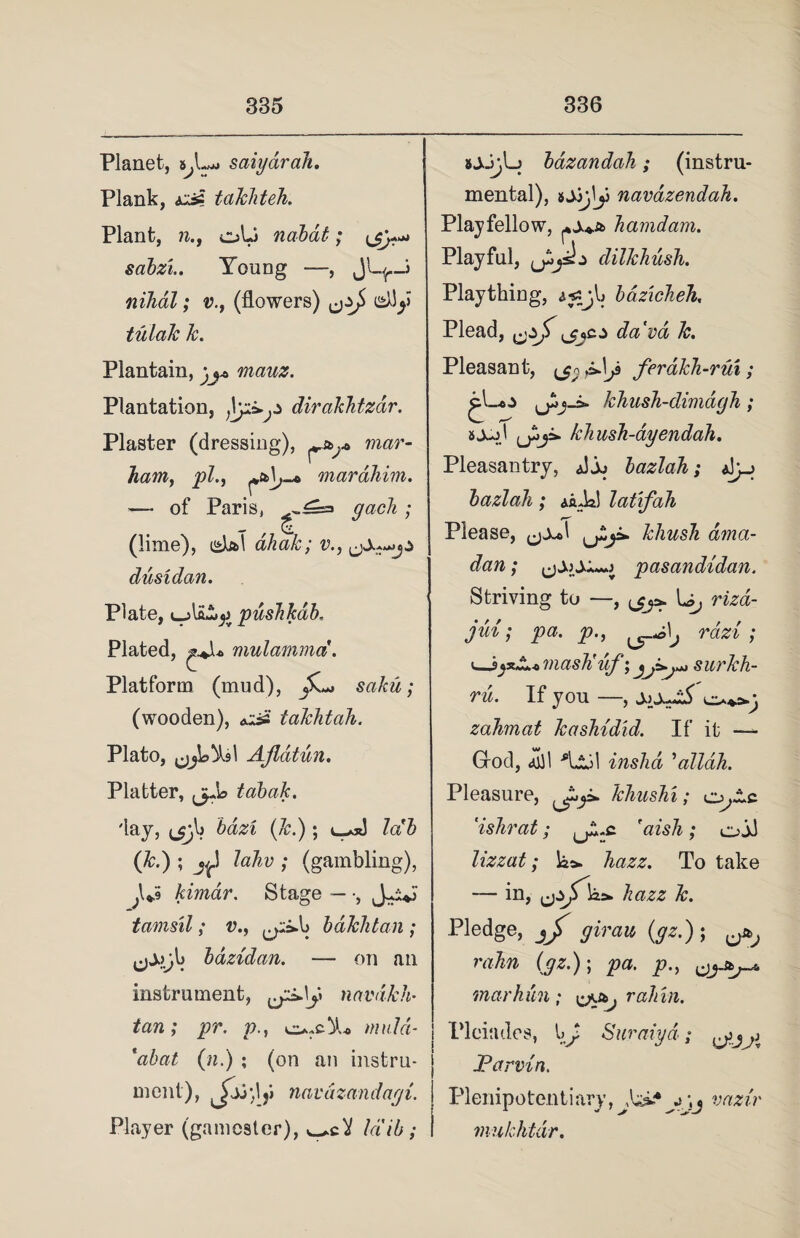 335
Planet, سیاره saiyárah.
Plank, تخته takhteh.
Plant, n., نبات nabát; سبزی
sabzi.. Young —, نهال
nihál; v., (flowers) تولك کردن
túlak k.
Plantain, موز mauz.
Plantation, درختزار dirakhtzár.
Plaster (dressing), مرهم mar-
ham, pl., مراهم maráhim.
— of Paris, گچ gach;
(lime), آهك áhak; v., دوسیدن
dúsídan.
Plate, پوشقاب púshkáb.
Plated, ملمع mulamma'.
Platform (mud), سکو sakú;
(wooden), تخته takhtah.
Plato, افلاطون Aflátún.
Platter, طبق tabak.
'lay, بازی bází (k.); لعب la'b
(k.); لهو lahv; (gambling),
قمار kimár. Stage —, تمثیل
tamsíl; v., باختن bákhtan;
بازیدن bázídan. — on an
instrument, نواختن navákh-
tan; pr. p., ملاعبت mulá-
'abat (n.); (on an instru-
ment), نوازندگی navázandagí.
Player (gamester), لاعب lá'ib;
336
بازنده bázandah; (instru-
mental), نوازنده navázendah.
Playfellow, همدم hamdam.
Playful, دلخوش dilkhúsh.
Plaything, بازیچه bázícheh,
Plead, دعوی کردن da'vá k.
Pleasant, فراخ روی ferákh-rúí;
خوش دماغ khush-dimágh;
خوش آینده khush-áyendah.
Pleasantry, بذله bazlah; بزله
bazlah; لطیفه latífah
Please, خوش آمدن khush áma-
dan; پسندیدن pasandídan.
Striving to —, رضا جوی rizá-
júí; pa. p., راضی rází;
مشعوف mash'úf; سرخرو surkh-
rú. If you —, زحمت کشیدید
zahmat kashídíd. If it —
God, انشاء الله inshá 'alláh.
Pleasure, خوشی khushí; عشرت
'ishrat; عیش 'aish; لذت
lizzat; حظ hazz. To take
— in, حظ کردن hazz k.
Pledge, گرو girau (gz.); رهن
rahn (gz.); pa. p., مرهون
marhún; رهین rahín.
Pleiades, ثریا Suraiyá; پروین
Parvín.
Plenipotentiary, وزیر مختار vazír
mukhtár.